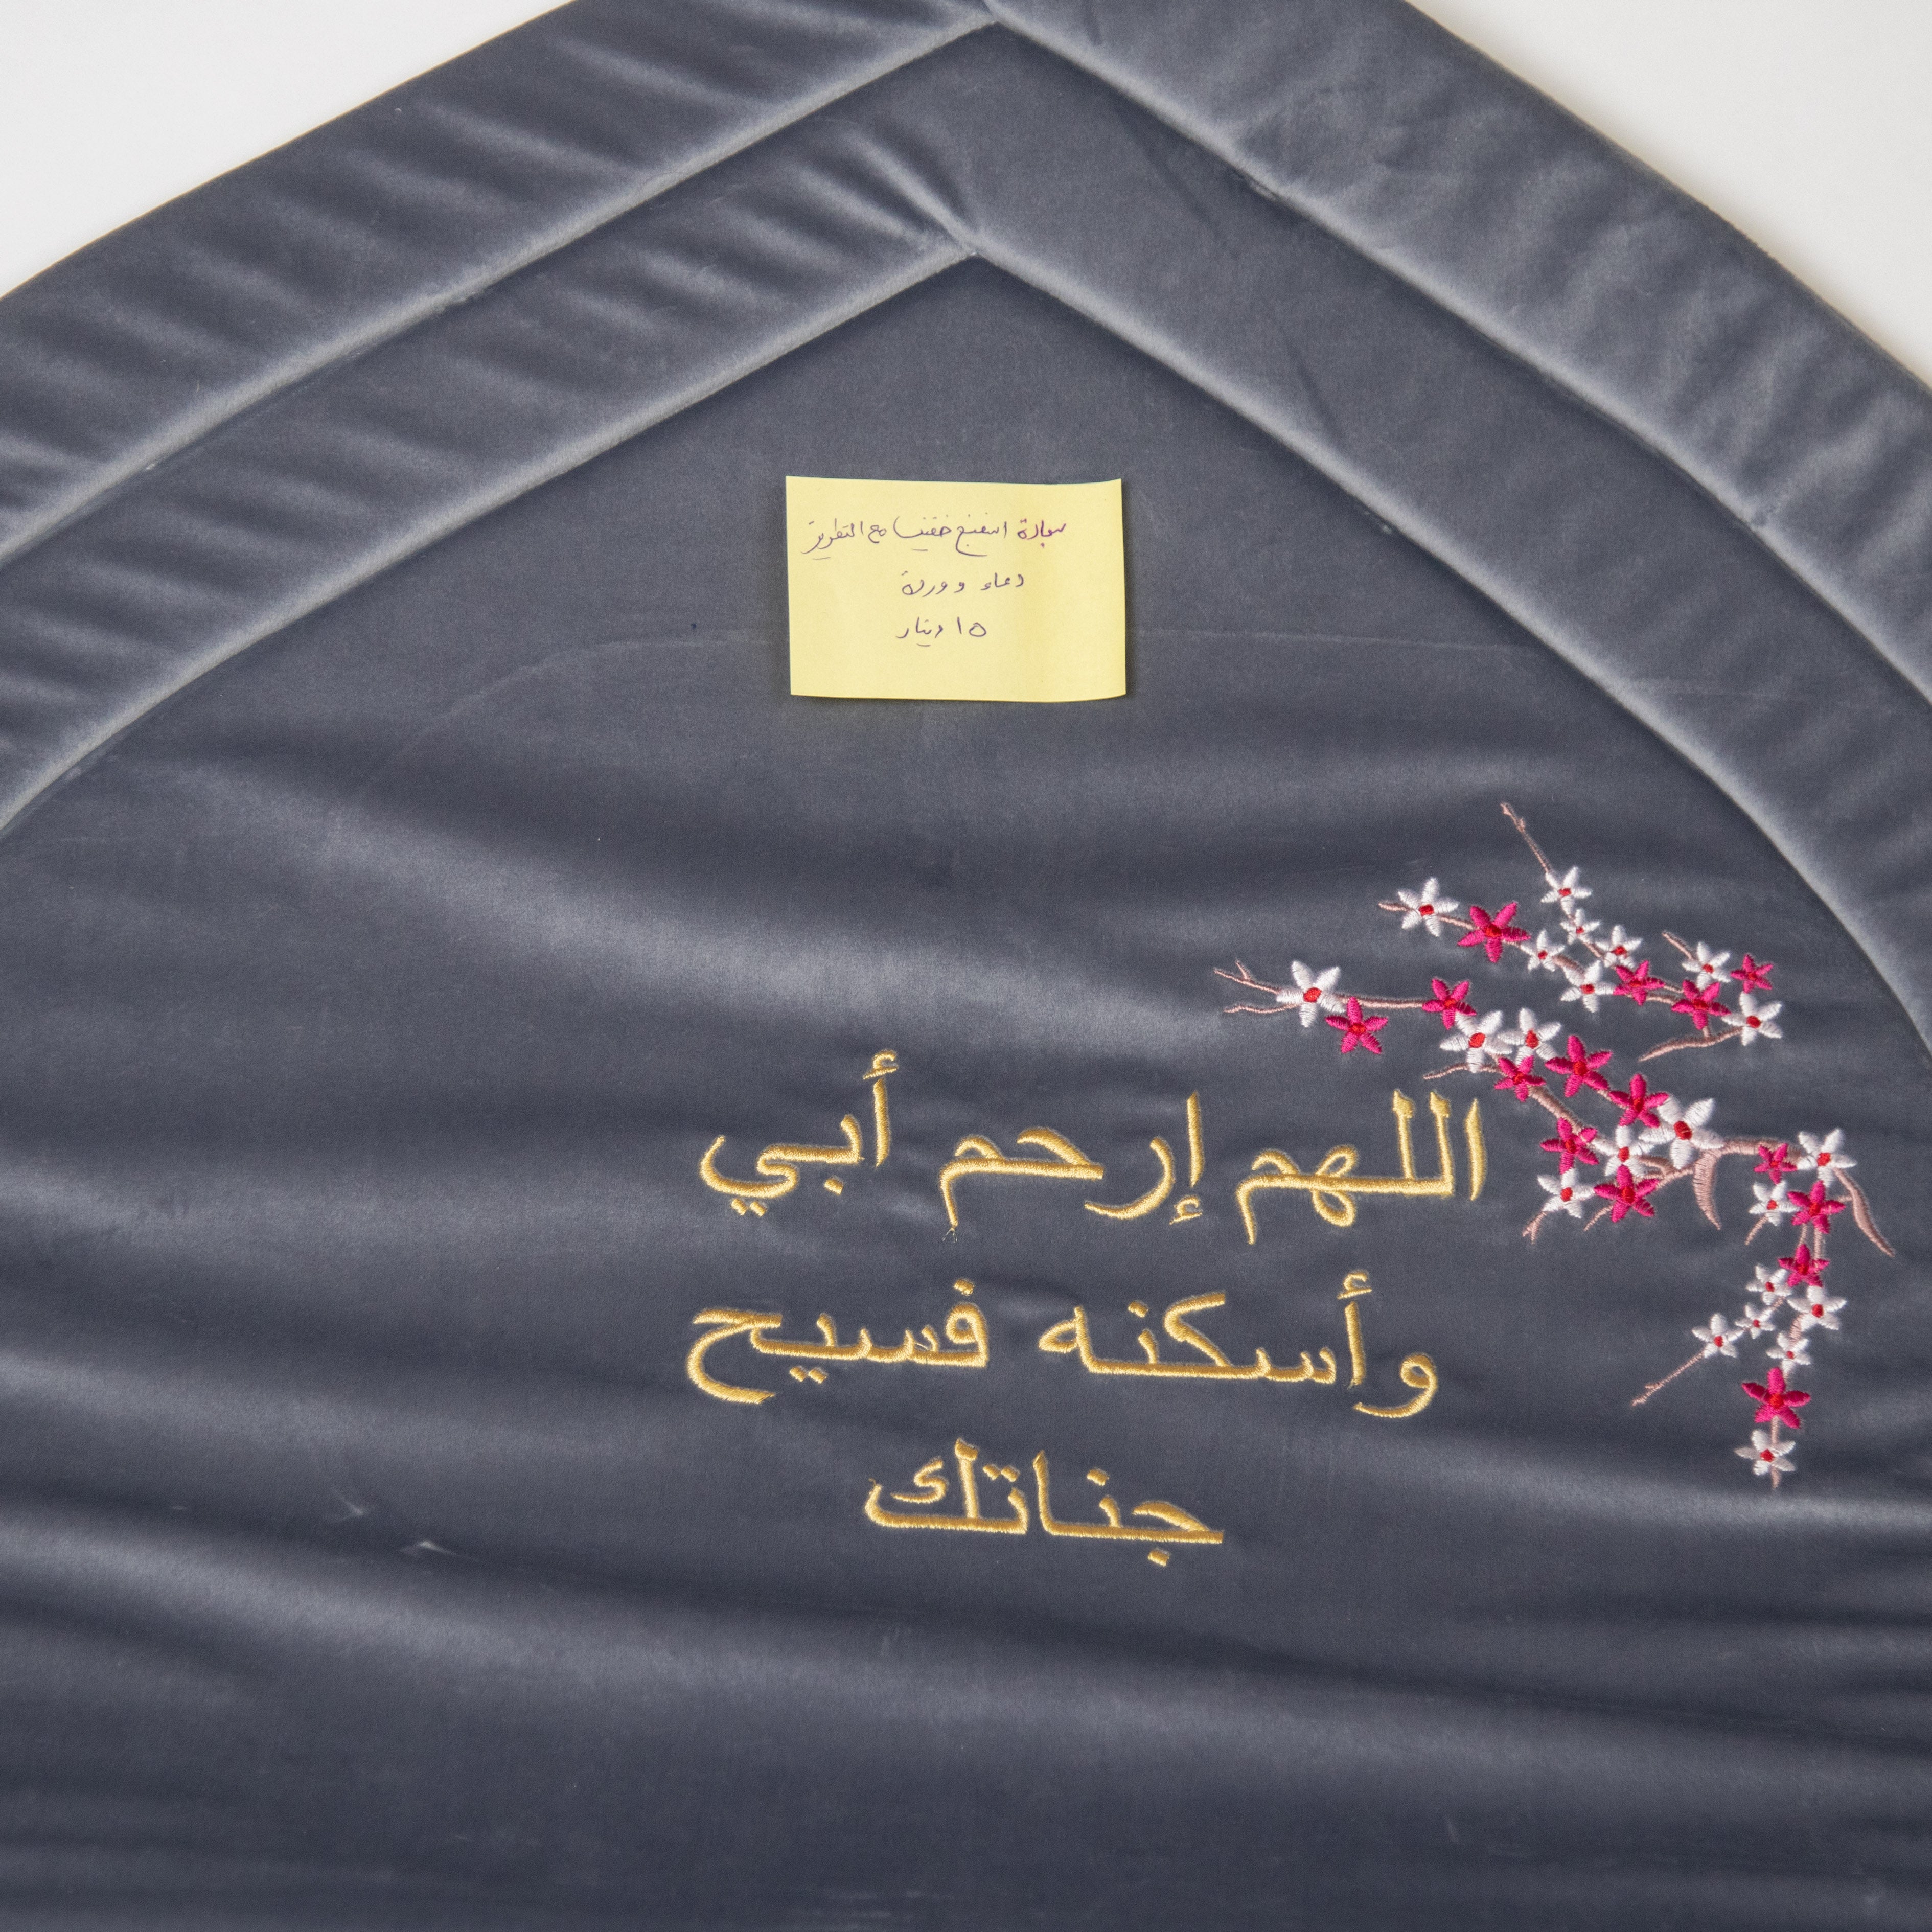 سجادة اسفنج خفيف مع التطريز
دعاء و وردة
١٥ دينار
اللهم إرحم أبي
وأسكنه فسيح
جناتك